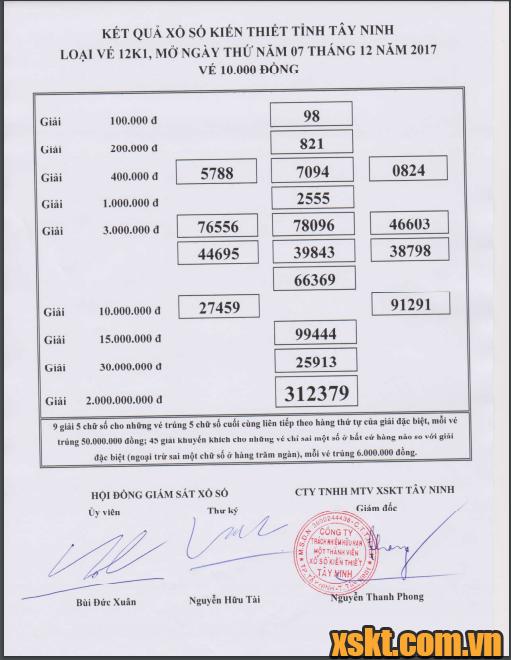 KẾT QUẢ XỔ SỐ KIẾN THIẾT TỈNH TÂY NINH
LOẠI VÉ 12K1, MỞ NGÀY THỨ NĂM 07 THÁNG 12 NĂM 2017
VÉ 10.000 ĐỒNG
Giải 100.000 đ 98
Giải 200.000 đ 821
Giải 400.000 đ 5788 7094 0824
Giải 1.000.000 đ 2555
Giải 3.000.000 đ 76556 78096 46603
44695 39843 38798
66369
Giải 10.000.000 đ 27459 91291
Giải 15.000.000 đ 99444
Giải 30.000.000 đ 25913
Giải 2.000.000.000 đ 312379
9 giải 5 chữ số cho những vé trúng 5 chữ số cuối cùng liên tiếp theo hàng thứ tự của giải đặc biệt, mỗi vé
trúng 50.000.000 đồng; 45 giải khuyến khích cho những vé chỉ sai một số ở bất cứ hàng nào so với giải
đặc biệt (ngoại trừ sai một chữ số ở hàng trăm ngàn), mỗi vé trúng 6.000.000 đồng.
HỘI ĐỒNG GIÁM SÁT XỔ SỐ CTY TNHH MTV XSKT TÂY NINH
Ủy viên Thư ký Giám đốc
CÔNG TY
TRÁCH NHIỆM HỮU HẠN
MỘT THÀNH VIÊN
XỔ SỐ KIẾN THIẾT
TÂY NINH
Bùi Đức Xuân Nguyễn Hữu Tài Nguyễn Thanh Phong
xskt.com.vn